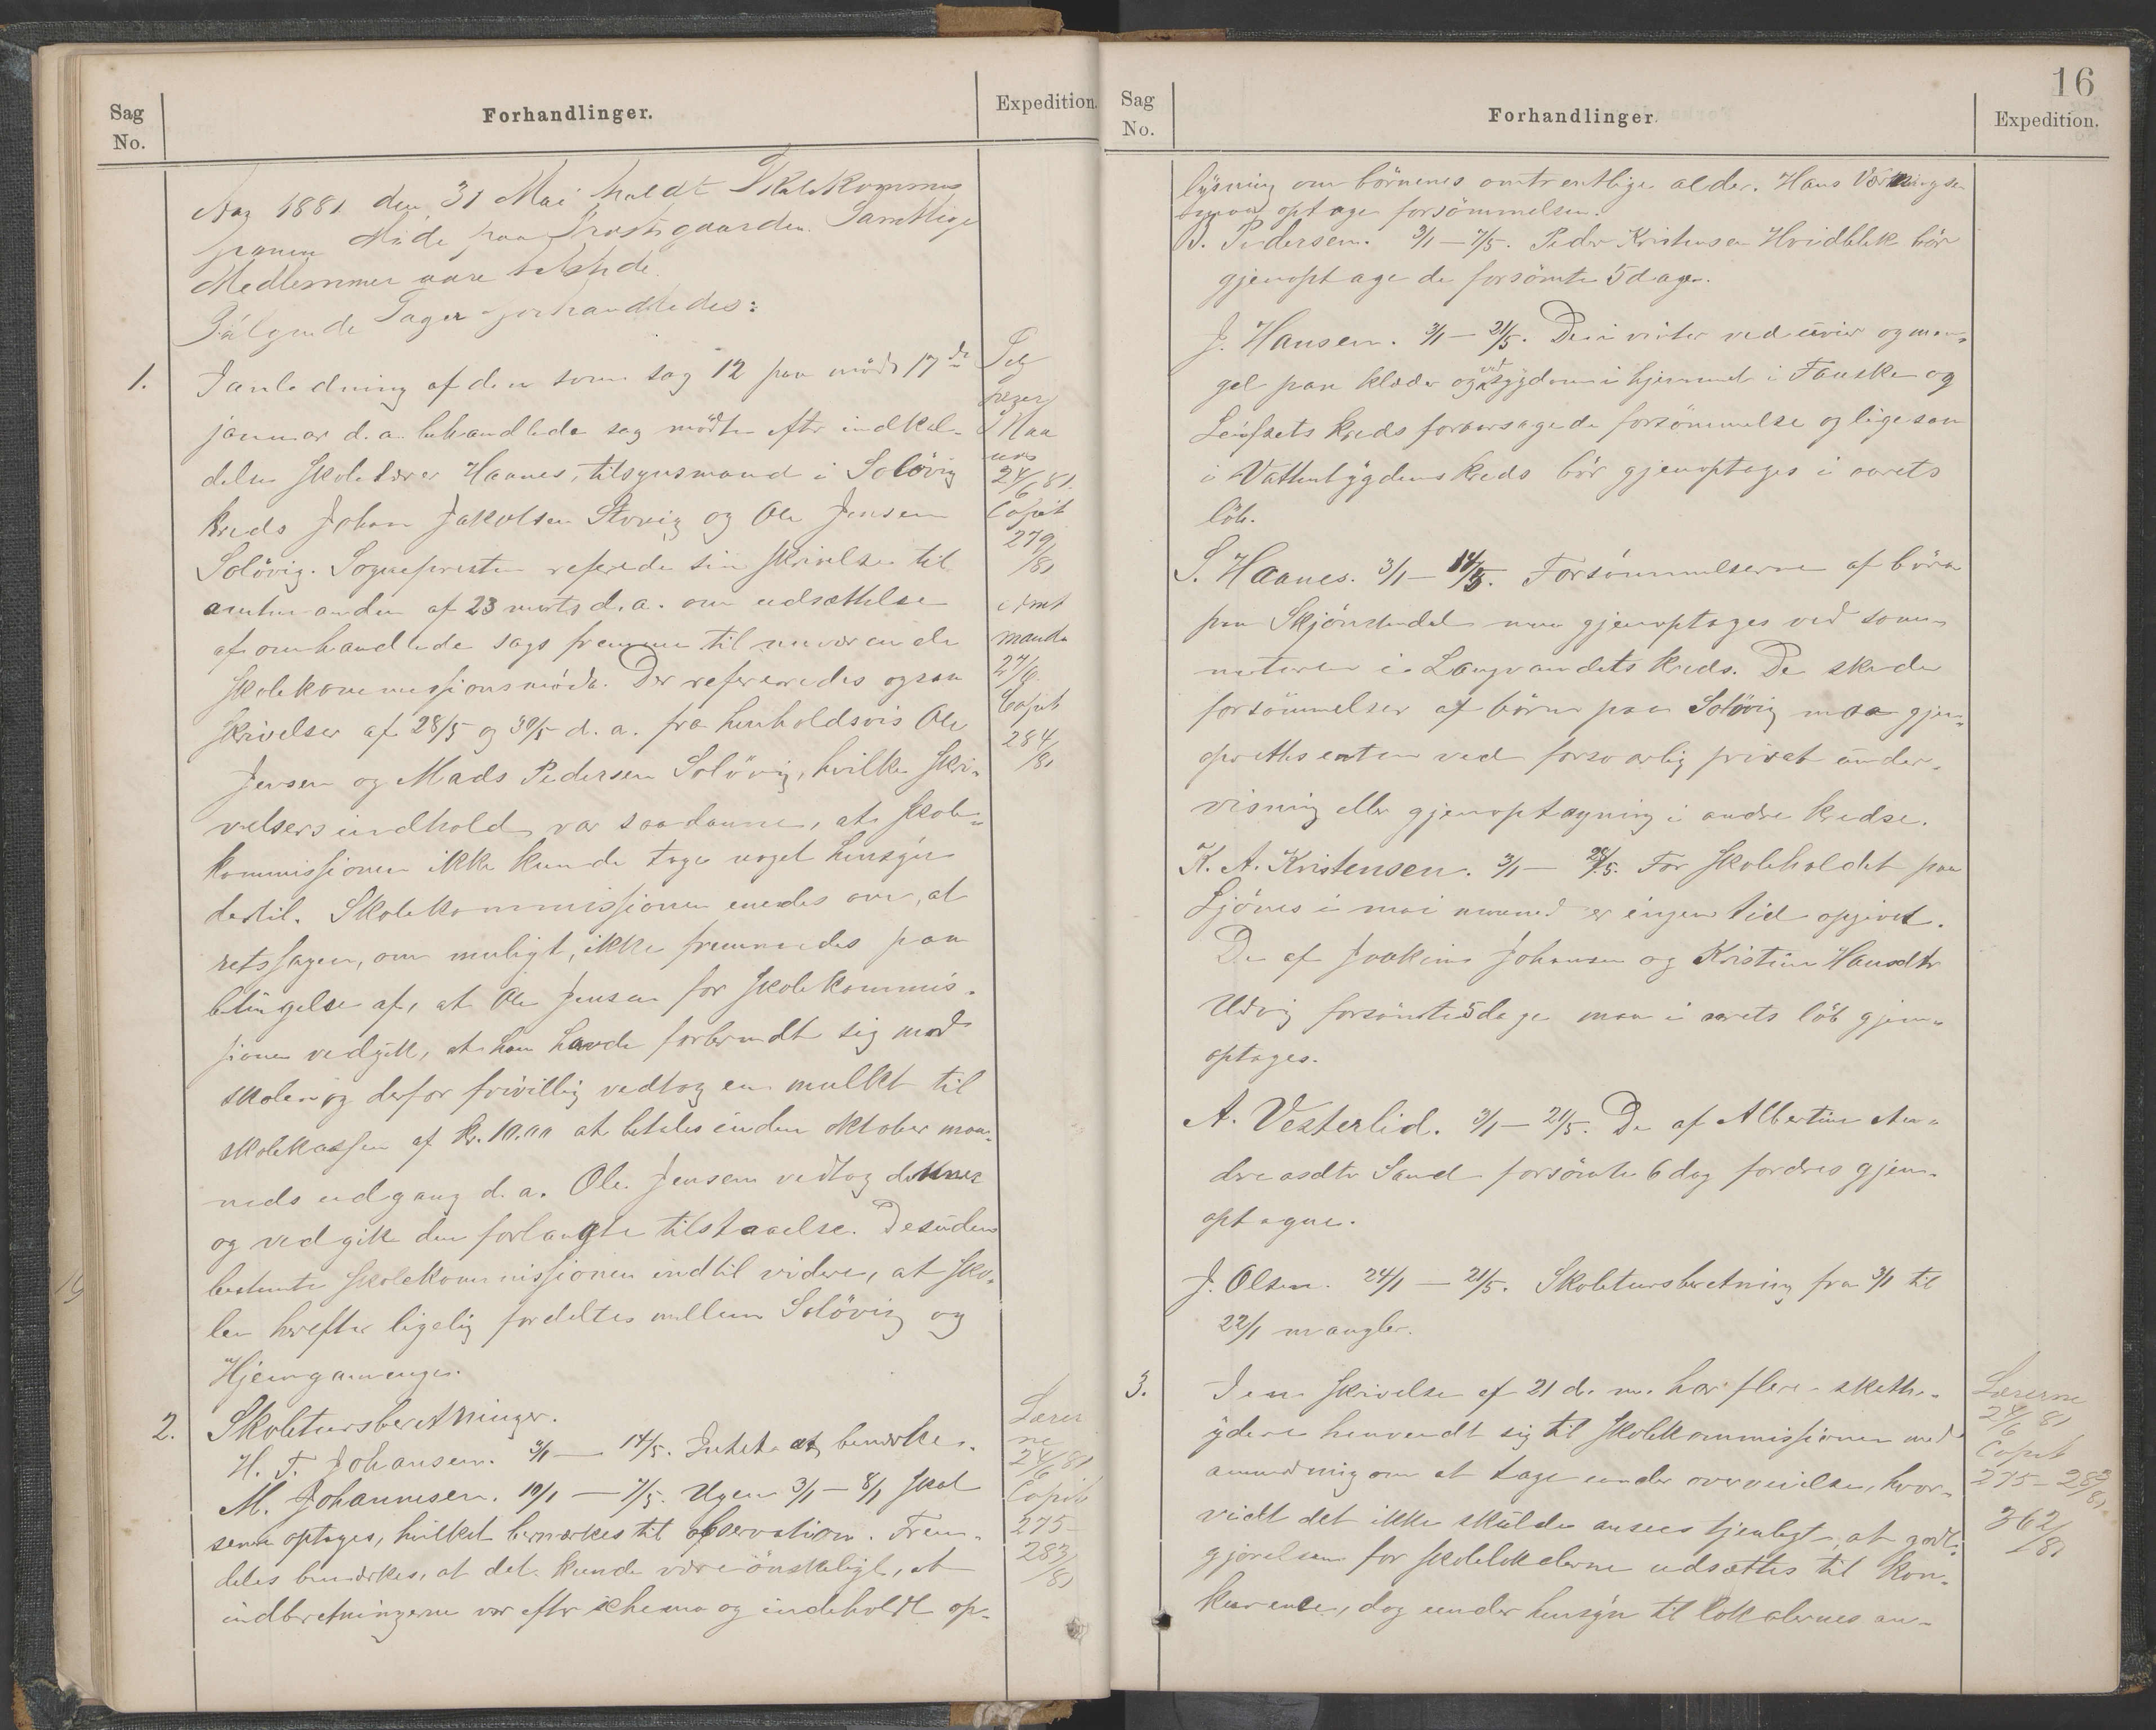 Sag
No.
Forhandlinger.
Expedition.
Aar 1881 den 31 Mai holdt Skolekommis
sionen Möde paa Præstegaarden. Samtlige
Medlemmer vare tilstede.
Fölgende Sager forhandledes:
1. I anledning af den som sag 12 paa möde 17de
januar d. a. behandlede sag mödte efter indkal-
delse skolelærer Haanes, tilsynsmand i Solövig
kreds Johan Jakobsen Storvig og Ole Jensen
Solövig. Sognepresten refererede sin skrivelse til
amtmanden af 23 marts d. a. om udsættelse
af omhandlede sags fremme til nuværende
skolekommissionsmöde. Der refereredes ogsaa
skrivelser af 28/5 og 30/5 d. a. fra henholdsvis Ole
Jensen og Mads Pedersen Solövig, hvilke skri-
velsers indhold var saadanne, at skole-
kommissionen ikke kunde tage noget hensyn
dertil. Skolekommissionen enedes om, at
retssagen, om muligt, ikke fremmedes paa
betingelse af, at Ole Jensen for skolekommis-
sionen vedgik, at han havde forbrudt sig mod
skolen og derfor frivillig vedtog en mulkt til
skolekassen af kr. 10.00 at betales inden oktober maa-
neds udgang d. a. Ole Jensen vedtog denne
og vedgik den forlangte tilstaaelse. Desuden
bestemte skolekommissionen indtil videre, at sko-
len herefter ligelig fordeltes mellem Solövig og
Hjemgamenger.
2. Skoletursberetninger.
H. T. Johansen. 3/1 — 14/5. Intet at bemærke.
M. Johannesen. 10/1 — 7/5. Ugen 3/1 — 8/1 skal
senere optages, hvilket bemærkes til observation. Frem-
deles bemærkes, at det kunde være önskeligt, at
indberetningerne var efter schema og indeholdt op-
Haa
nes
24/6 81.
Copieb
279/
/81
Amt
manden
27/6.
Copieb
284/
/81
Lærer
ne
24/6 81
Copieb
275-
283/
/81
16
Sag
No.
Forhandlinger.
Expedition.
lysning om börnenes omtrentlige alder. Hans
optage forsömmelsen.
B. Pedersen. 3/1 — 7/5. Peder Kristensen Hvidblik bör
gjenoptage de forsömte 5 dage.
J. Hansen. 3/1 — 21/5. De i vinter ved uveir og man-
gel paa klæder og ved sygdom i hjemmet i Fauske og
Leifsets kreds foraarsagede forsömmelse og ligesom
i Vattenbygdens kreds bör gjenoptages i aarets
löb.
S. Haanes. 3/1 — 14/5. Forsömmelserne af börn
paa Skjönstudal maa gjenoptages ved som-
merturen i Langvandets kreds. De skede
forsömmelser af börn paa Solövig maa gjen-
oprettes enten ved forsvarlig privat under-
visning eller gjenoptagning i andre kredse.
K. A. Kristensen. 3/1 — 28/5. For skoleholdet paa
Sjönes i mai maaned er ingen tid opgivet.
De af Joakim Johansen og Kristine Hansdtr
Udvig forsömte 5 dage maa i aarets löb gjen-
optages.
A. Vesterlid. 3/1 — 21/5. De af Albertine An-
dreasdtr Sand forsömte 6 dag fordres gjen-
optagne.
J. Olsen. 24/1 — 21/5. Skoletursberetning fra 3/1 til
22/1 mangler.
3. I en skrivelse af 21 d. m. har flere skatte-
ydere henvendt sig til skolekommissionen med
anmodning om at tage under overveielse, hvor-
vidt det ikke skulde ansees tjenligt, at godt-
gjörelsen for skolelokalerne udsættes til kon-
kurence, dog under hensyn til lokalernes an-
Lærerne
24/6 81
Copieb
275-283/
/81
362/
/81